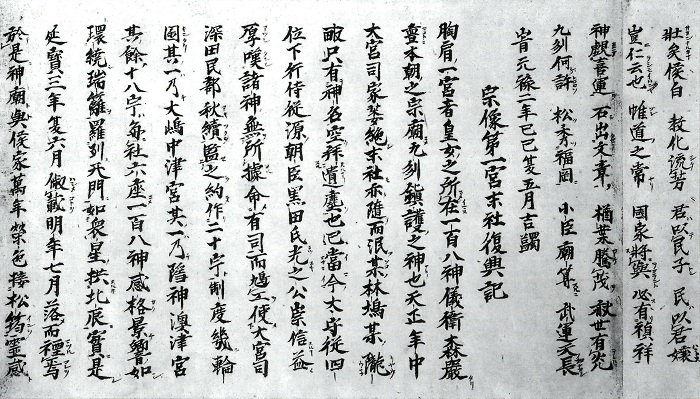 壯矣侯白 教化流芳 君以民子 民以君孃
豈仁云也 惟道之常 國家將興 必有禎祥
神覡喜運 石出文章 楢葉騰茂 秋世有光
九刕何許 松秀福岡 小臣廟尊 武運天長
旹元祿二年己巳夏五月吉謁
宗像第一宮末社復興記
胸肩一宮者皇女之所在一百八神儀衛森嚴
臺本朝之宗廟九刕鎭護之神也天正年中
大宮司家蓽絶末社亦隨而泯某林塢某隴
畝只有神名空拜遺廛也已當今太守從四
位下行侍從源朝臣黒田氏光之公崇信益
厚嘆諸神無所據命有司而鳩工使大宮司
深田民部秋續監之約作二十宇制度幾輪
圍其一乃大嶋中津宮其一乃陪神澳津宮
其餘十八宇毎社六座一百八神感格景響如
環繞瑞籬羅列天門如衆星拱北辰實是
延寶三年夏六月俶載明年七月落而禋焉
於是神廟與侯家萬年榮色接松筠靈感